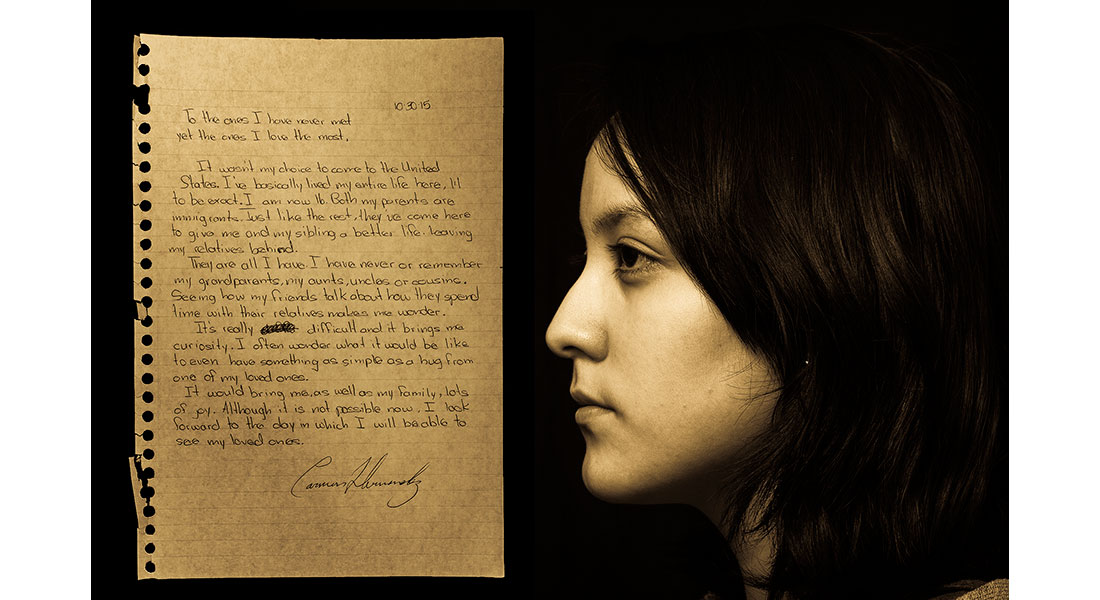 10·30·15
To the ones I have never met
yet the ones I love the most.
It wasn't my choice to come to the United
States. I've basically lived my entire life here, 14
to be exact. I am now 16. Both my parents are
immigrants. Just like the rest, they've come here
to give me and my sibling a better life. leaving
my relatives behind.
They are all I have. I have never or remember
my grandparents, my aunts, uncles or cousins.
Seeing how my friends talk about how they spend
time with their relatives makes me wonder.
It's really difficult and it brings me
curiosity. I often wonder what it would be like
to even have something as simple as a hug from
one of my loved ones.
It would bring me, as well as my family, lots
of joy. Although it is not possible now, I look
forward to the day in which I will be able to
see my loved ones.